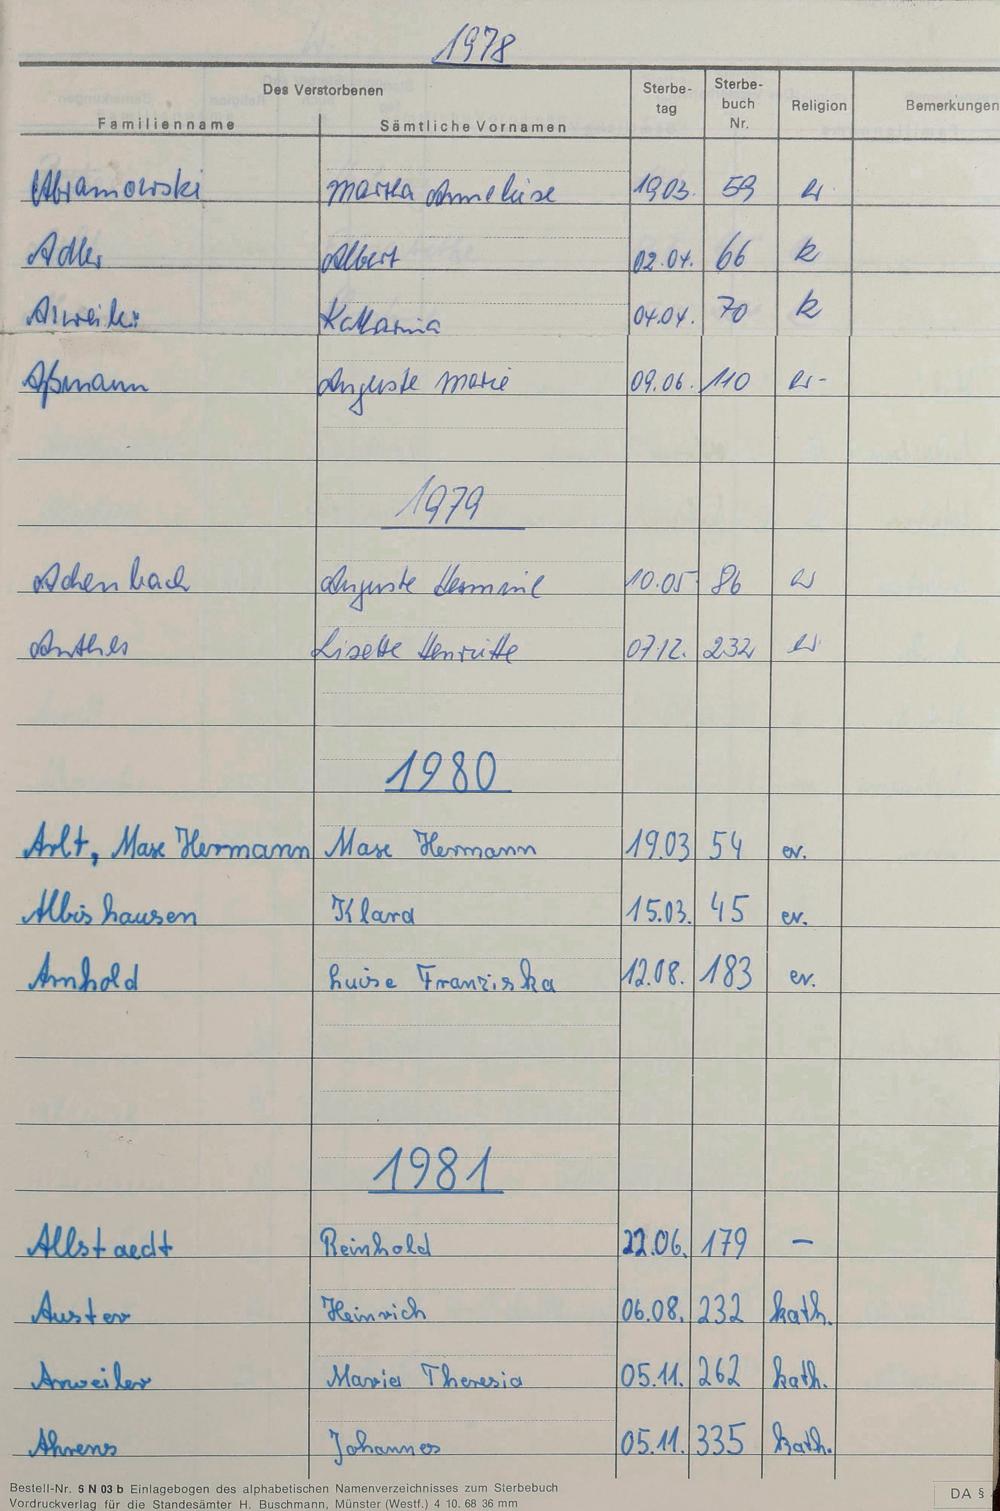 1978
Des Verstorbenen Sterbe- Sterbe-
tag buch Religion Bemerkungen
Familienname Sämtliche Vornamen Nr.
Abramowski Martha Anneliese 19.03. 59 ev.
Adler Albert 02.04. 66 k
Anweiler Katharina 04.04. 70 k
Aßmann Auguste Marie 09.06. 110 ev-
1979
Achenbach Auguste Hermine 10.05 86 ev
Anthes Lisette Henriette 07.12. 232 ev.
1980
Arlt, Max Hermann Max Hermann 19.03 54 ev.
Albishausen Klara 15.03. 45 ev.
Arnhold Luise Franziska 12.08. 183 ev.
1981
Allstaedt Reinhold 22.06. 179 –
Auster Heinrich 06.08. 232 kath.
Anweiler Maria Theresia 05.11. 262 kath.
Ahrens Johannes 05.11. 335 kath.
Bestell-Nr. 5 N 03 b Einlagebogen des alphabetischen Namenverzeichnisses zum Sterbebuch
Vordruckverlag für die Standesämter H. Buschmann, Münster (Westf.) 4 10. 68 36 mm
DA §